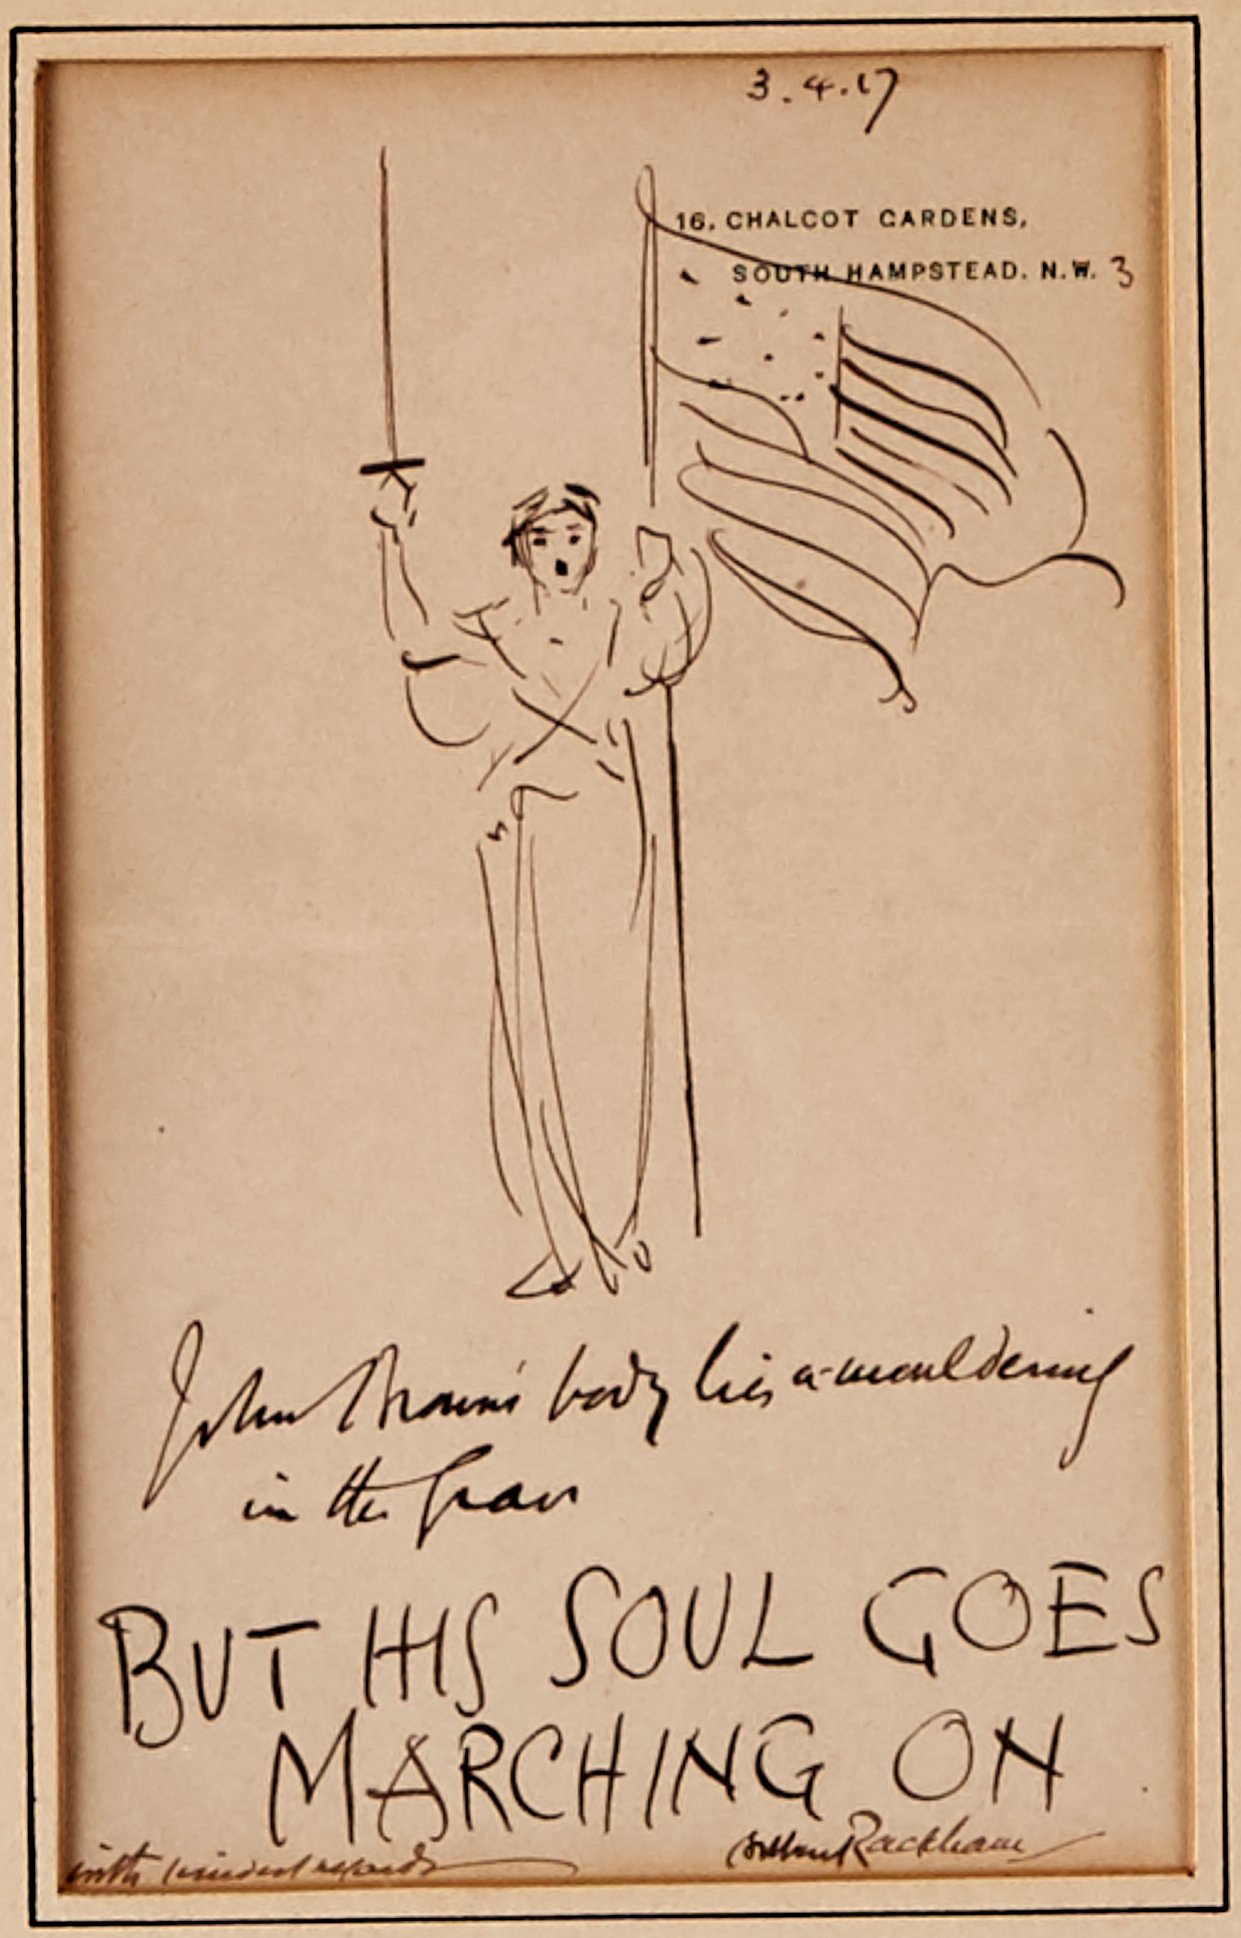 3.4.17
16, CHALCOT GARDENS,
SOUTH HAMPSTEAD. N.W. 3
John Brown's body lies a-mouldering
in the grave
BUT HIS SOUL GOES
MARCHING ON
with kindest regards
Arthur Rackham